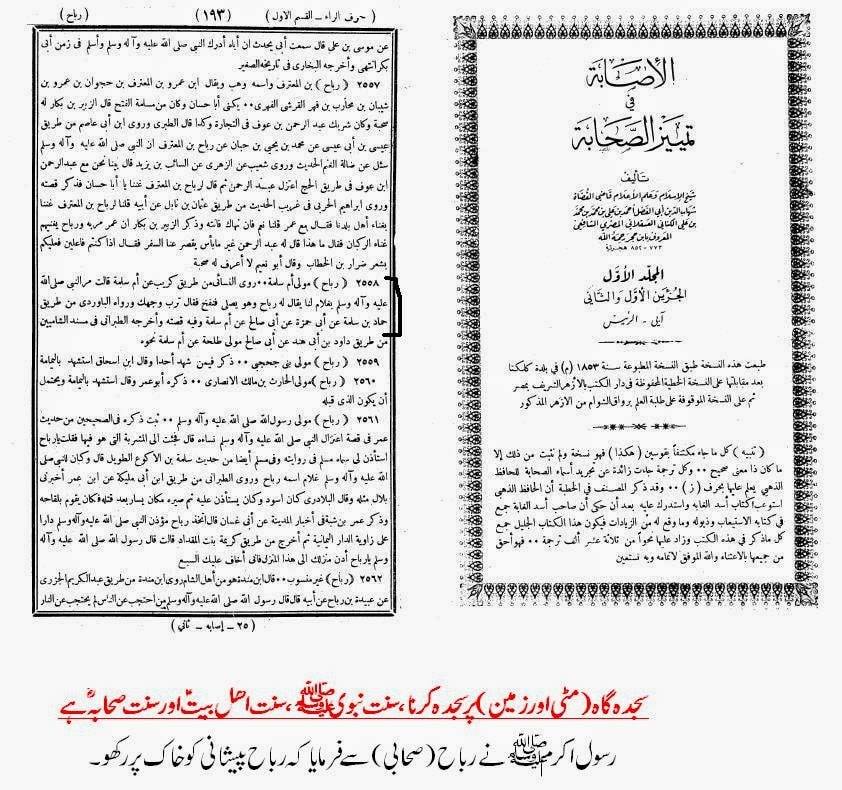 الإصابة
في
تمييز الصحابة
تأليف
شيخ الإسلام وعلم الأعلام قاضي القضاة
شهاب الدين أبي الفضل أحمد بن علي بن محمد بن محمد
بن علي الكناني العسقلاني المصري الشافعي
المعروف بابن حجر رحمه الله
٧٧٣ - ٨٥٢ هجرية
المجلد الأول
الجزئين الأول والثاني
آبي - الرئيس
طبعت هذه النسخة طبق النسخة المطبوعة سنة ١٨٥٣ (م) في بلدة كلكتا
بعد مقابلتها على النسخة الخطية المحفوظة في دار الكتب بالأزهر الشريف بمصر
ثم على النسخة الموقوفة على طلبة العلم برواق الشوام من الازهر المذكور
( تنبيه ) كل ما جاء مكتنفاً بقوسين ( هكذا ) فهو نسخة ولم نثبت من ذلك إلا
ما كان ذا معنى صحيح ٠٠ وكل ترجمة جاءت زائدة عن تجريد أسماء الصحابة للحافظ
الذهبي يعلم عليها بحرف ( ز ) ٠٠ وقد ذكر المصنف في الخطبة أن الحافظ الذهبي
استوعب كتاب أسد الغابة واستدرك عليه بعد أن حكى أن صاحب أسد الغابة جمع
في كتابه الاستيعاب وذيوله وما وقع له من الزيادات فيكون هذا الكتاب الجليل جمع
كل ماذكر في هذه الكتب وزاد عليها نحواً من ثلاثة عشر ألف ترجمة ٠٠ فهو أحق
من جميعها بالاعتناء والله الموفق لاتمامه وبه نستعين
( حرف الراء - القسم الاول ) ( ١٩٣ ) ( رباح )
عن موسى بن على قال سمعت أبي يحدث ان أباه أدرك النبي صلى الله عليه وآله وسلم وأسلم فى زمن أبى
بكر انتهى وأخرجه البخارى فى تاريخه الصغير
٢٥٥٧ ( رباح ) بن المعترف واسمه وهب ويقال ابن عمرو بن المعترف بن حجوان بن عمرو بن
شيبان بن محارب بن فهر القرشى الفهرى ٠٠ يكنى أبا حسان وكان من مسلمة الفتح قال الزبير بن بكار له
صحبة وكان شريك عبد الرحمن بن عوف فى التجارة وكذا قال الطبرى وروى ابن أبى عاصم من طريق
عيسى بن أبى عيسى عن محمد بن يحيى بن حبان عن رباح بن المعترف ان النبى صلى الله عليه وآله وسلم
سئل عن ضالة الغنم الحديث وروى شعيب عن الزهرى عن السائب بن يزيد قال بينا نحن مع عبدالرحمن
ابن عوف فى طريق الحج اعتزل عبد الرحمن ثم قال لرباح بن المعترف غننا يا أبا حسان فذكر قصته
وروى ابراهيم الحربى فى غريب الحديث من طريق عثمان بن نابل عن أبيه قلنا لرباح بن المعترف غننا
بغناء أهل بلدنا فقال مع عمر قلنا نم فان نهاك فانته وذكر الزبير بن بكار ان عمر مر به ورباح يغنيهم
غناء الركبان فقال ما هذا قال له عبد الرحمن غير مابأس يقصر عنا السفر فقال اذا كنتم فاعلين فعليكم
بشعر ضرار بن الخطاب وقال أبو نعيم لا أعرف له صحبة
٢٥٥٨ ( رباح ) مولى أم سلمة ٠٠ روى النسائى من طريق كريب عن أم سلمة قالت مر النبى صلى الله
عليه وآله وسلم بغلام لنا يقال له رباح وهو يصلى فنفخ فقال ترب وجهك ورواه الباوردى من طريق
حماد بن سلمة عن أبى حمزة عن أبى صالح عن أم سلمة وفيه قصته وأخرجه الطبرانى فى مسند الشاميين
من طريق داود بن أبى هند عن أبى صالح مولى طلحة عن أم سلمة نحوه
٢٥٥٩ ( رباح ) مولى بنى جحجبى ٠٠ ذكر فيمن شهد أحدا وقال ابن اسحاق استشهد باليمامة
٢٥٦٠ ( رباح ) مولى الحارث بن مالك الانصارى ٠٠ ذكره أبوعمر وقال استشهد باليمامة ويحتمل
أن يكون الذى قبله
٢٥٦١ ( رباح ) مولى رسول الله صلى الله عليه وآله وسلم ٠٠ ثبت ذكره فى الصحيحين من حديث
عمر فى قصة اعتزال النبى صلى الله عليه وآله وسلم نساءه قال فجئت الى المشربة التى هو فيها فقلت يارباح
استأذن لى سماه مسلم فى روايته وفى مسلم أيضا من حديث سلمة بن الاكوع الطويل قال وكان للنبى صلى
الله عليه وآله وسلم غلام اسمه رباح وروى الطبرانى من طريق ابن أبى مليكة عن ابن عمر أخبرنى
بلال مثله وقال البلادرى كان اسود وكان يستأذن عليه ثم صيره مكان يسار بعد قتله فكان يقوم بلقاحه
وذكر عمر بن شبة فى أخبار المدينة عن أبى غسان قال اتخذ رباح مؤذن النبى صلى الله عليه وآله وسلم دارا
على زاوية الدار اليمانية ثم أخرج من طريق كريمة بنت المقداد قالت قال رسول الله صلى الله عليه وآله
وسلم يارباح أدن منزلك الى هذا المنزل فانى أخاف عليك السبع
٢٥٦٢ ( رباح ) غير منسوب ٠٠ قال ابن مندة هو من أهل الشام روى ابن مندة من طريق عبدالكريم الجزرى
عن عبيدة بن رباح عن أبيه قال قال رسول الله صلى الله عليه وآله وسلم من احتجب عن الناس لم يحتجب عن النار
( ٢٥ - إصابه - ثانى )
سجدہ گاہ (مٹی اور زمین) پر سجدہ کرنا، سنت نبوی ﷺ، سنت اھل بیتؑ اور سنت صحابہؓ ہے
رسول اکرم ﷺ نے رباح (صحابی) سے فرمایا کہ رباح پیشانی کو خاک پر رکھو۔